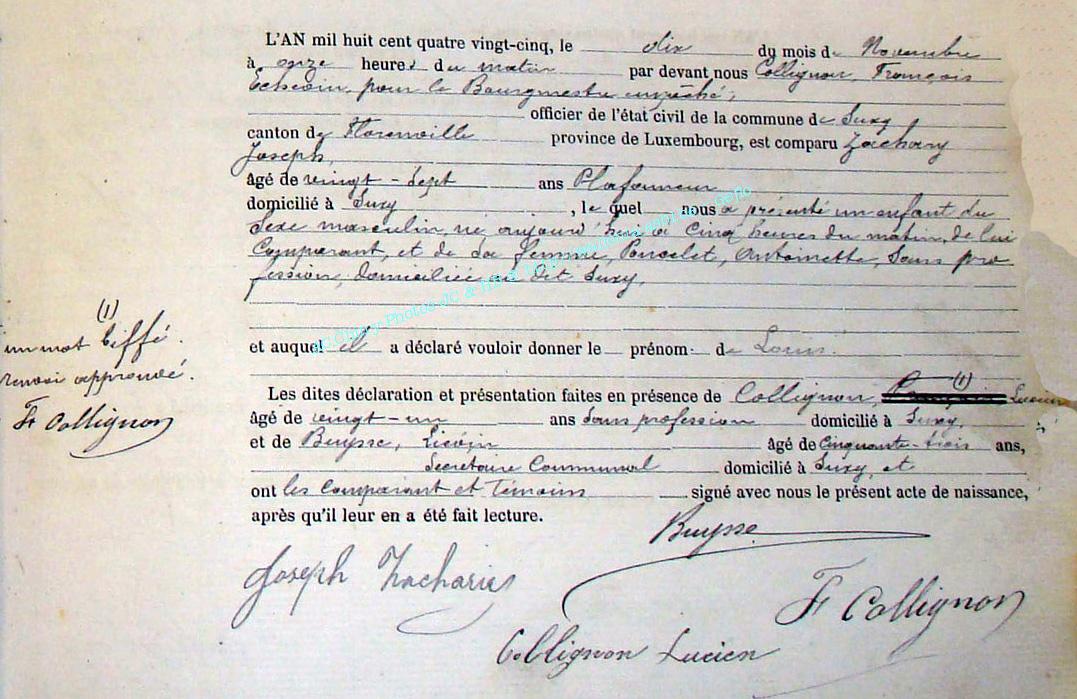 L'AN mil huit cent quatre vingt-cinq, le dix du mois de Novembre
à onze heures du matin par devant nous Collignon, François
Echevin, pour le Bourgmestre empêché,
officier de l'état civil de la commune de Suxy
canton de Florenville province de Luxembourg, est comparu Zachary
Joseph,
âgé de vingt-sept ans Plafonneur
domicilié à Suxy, lequel nous a présenté un enfant du
Sexe masculin, né aujourd'hui à Cinq heures du matin, de lui
Comparant, et de Sa femme, Poncelet, Antoinette, Sans pro
fession, domiciliée au dit Suxy,
et auquel il a déclaré vouloir donner le prénom de Louis.
Les dites déclaration et présentation faites en présence de Collignon, (1) Lucien
âgé de vingt-un ans Sans profession domicilié à Suxy,
et de Buysse, Liévin âgé de Cinquante-trois ans,
Secrétaire Communal domicilié à Suxy, et
ont les Comparant et Témoins signé avec nous le présent acte de naissance,
après qu'il leur en a été fait lecture.
(1)
un mot biffé.
renvoi approuvé.
Fr Collignon
Buysse
Joseph Zacharie
Fr Collignon
Collignon Lucien